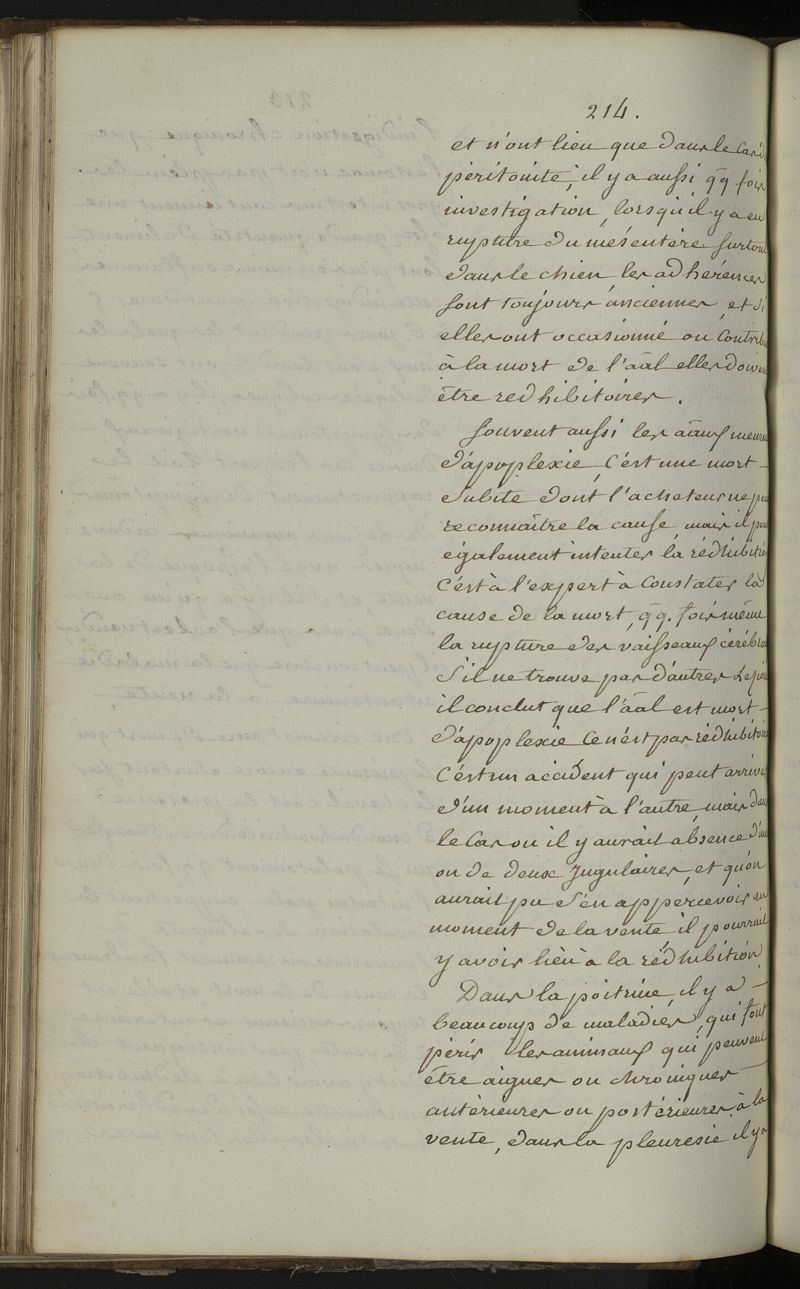 214.
et n'ont lieu que dans le Cas d
péritonite, il y a aussi qq fois
investigation, lorsqu'il y a eu
rupture du mésentère surtout
dans le chien les adhérences
sont toujours anciennes, et si
elles ont occasionné ou Contrib
à la mort de l'aal elles doiv
être redhibitoires.
souvent aussi les aaux meur
d'apoplexie, C'est une mort
subite dont l'acheteur ne p
reconnaître la cause, mais il p
également intenter la rédhibiti
C'est à l'expert à Constater la
cause de la mort, qq. fois même
la rupture des vaisseaux cérébra
s'il ne trouve pas d'autres Lési
il conclut que l'aal est mort
d'apoplexie Ce n'est pas rédhibitoir
C'est un accident qui peut arriv
d'un moment à l'autre, mais dans
le Cas ou il y aurait absence d'un
ou de deux Jugulaires, et qu'on
aurait pu s'en appercevoir au
moment de la vente il pourrait
y avoir lieu à la rédhibition
Dans la poitrine, il y a
beaucoup de maladies, qui font
périr les animaux qui peuvent
être aigues ou chroniques
antérieures ou postérieures à la
vente, dans la pleuresie il y a